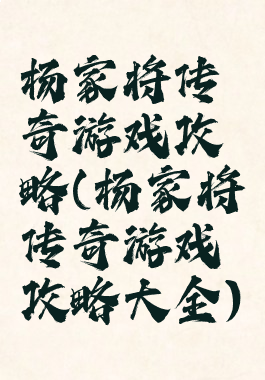 杨家将传
奇游戏攻
略(杨家将
传奇游戏
攻略大全)